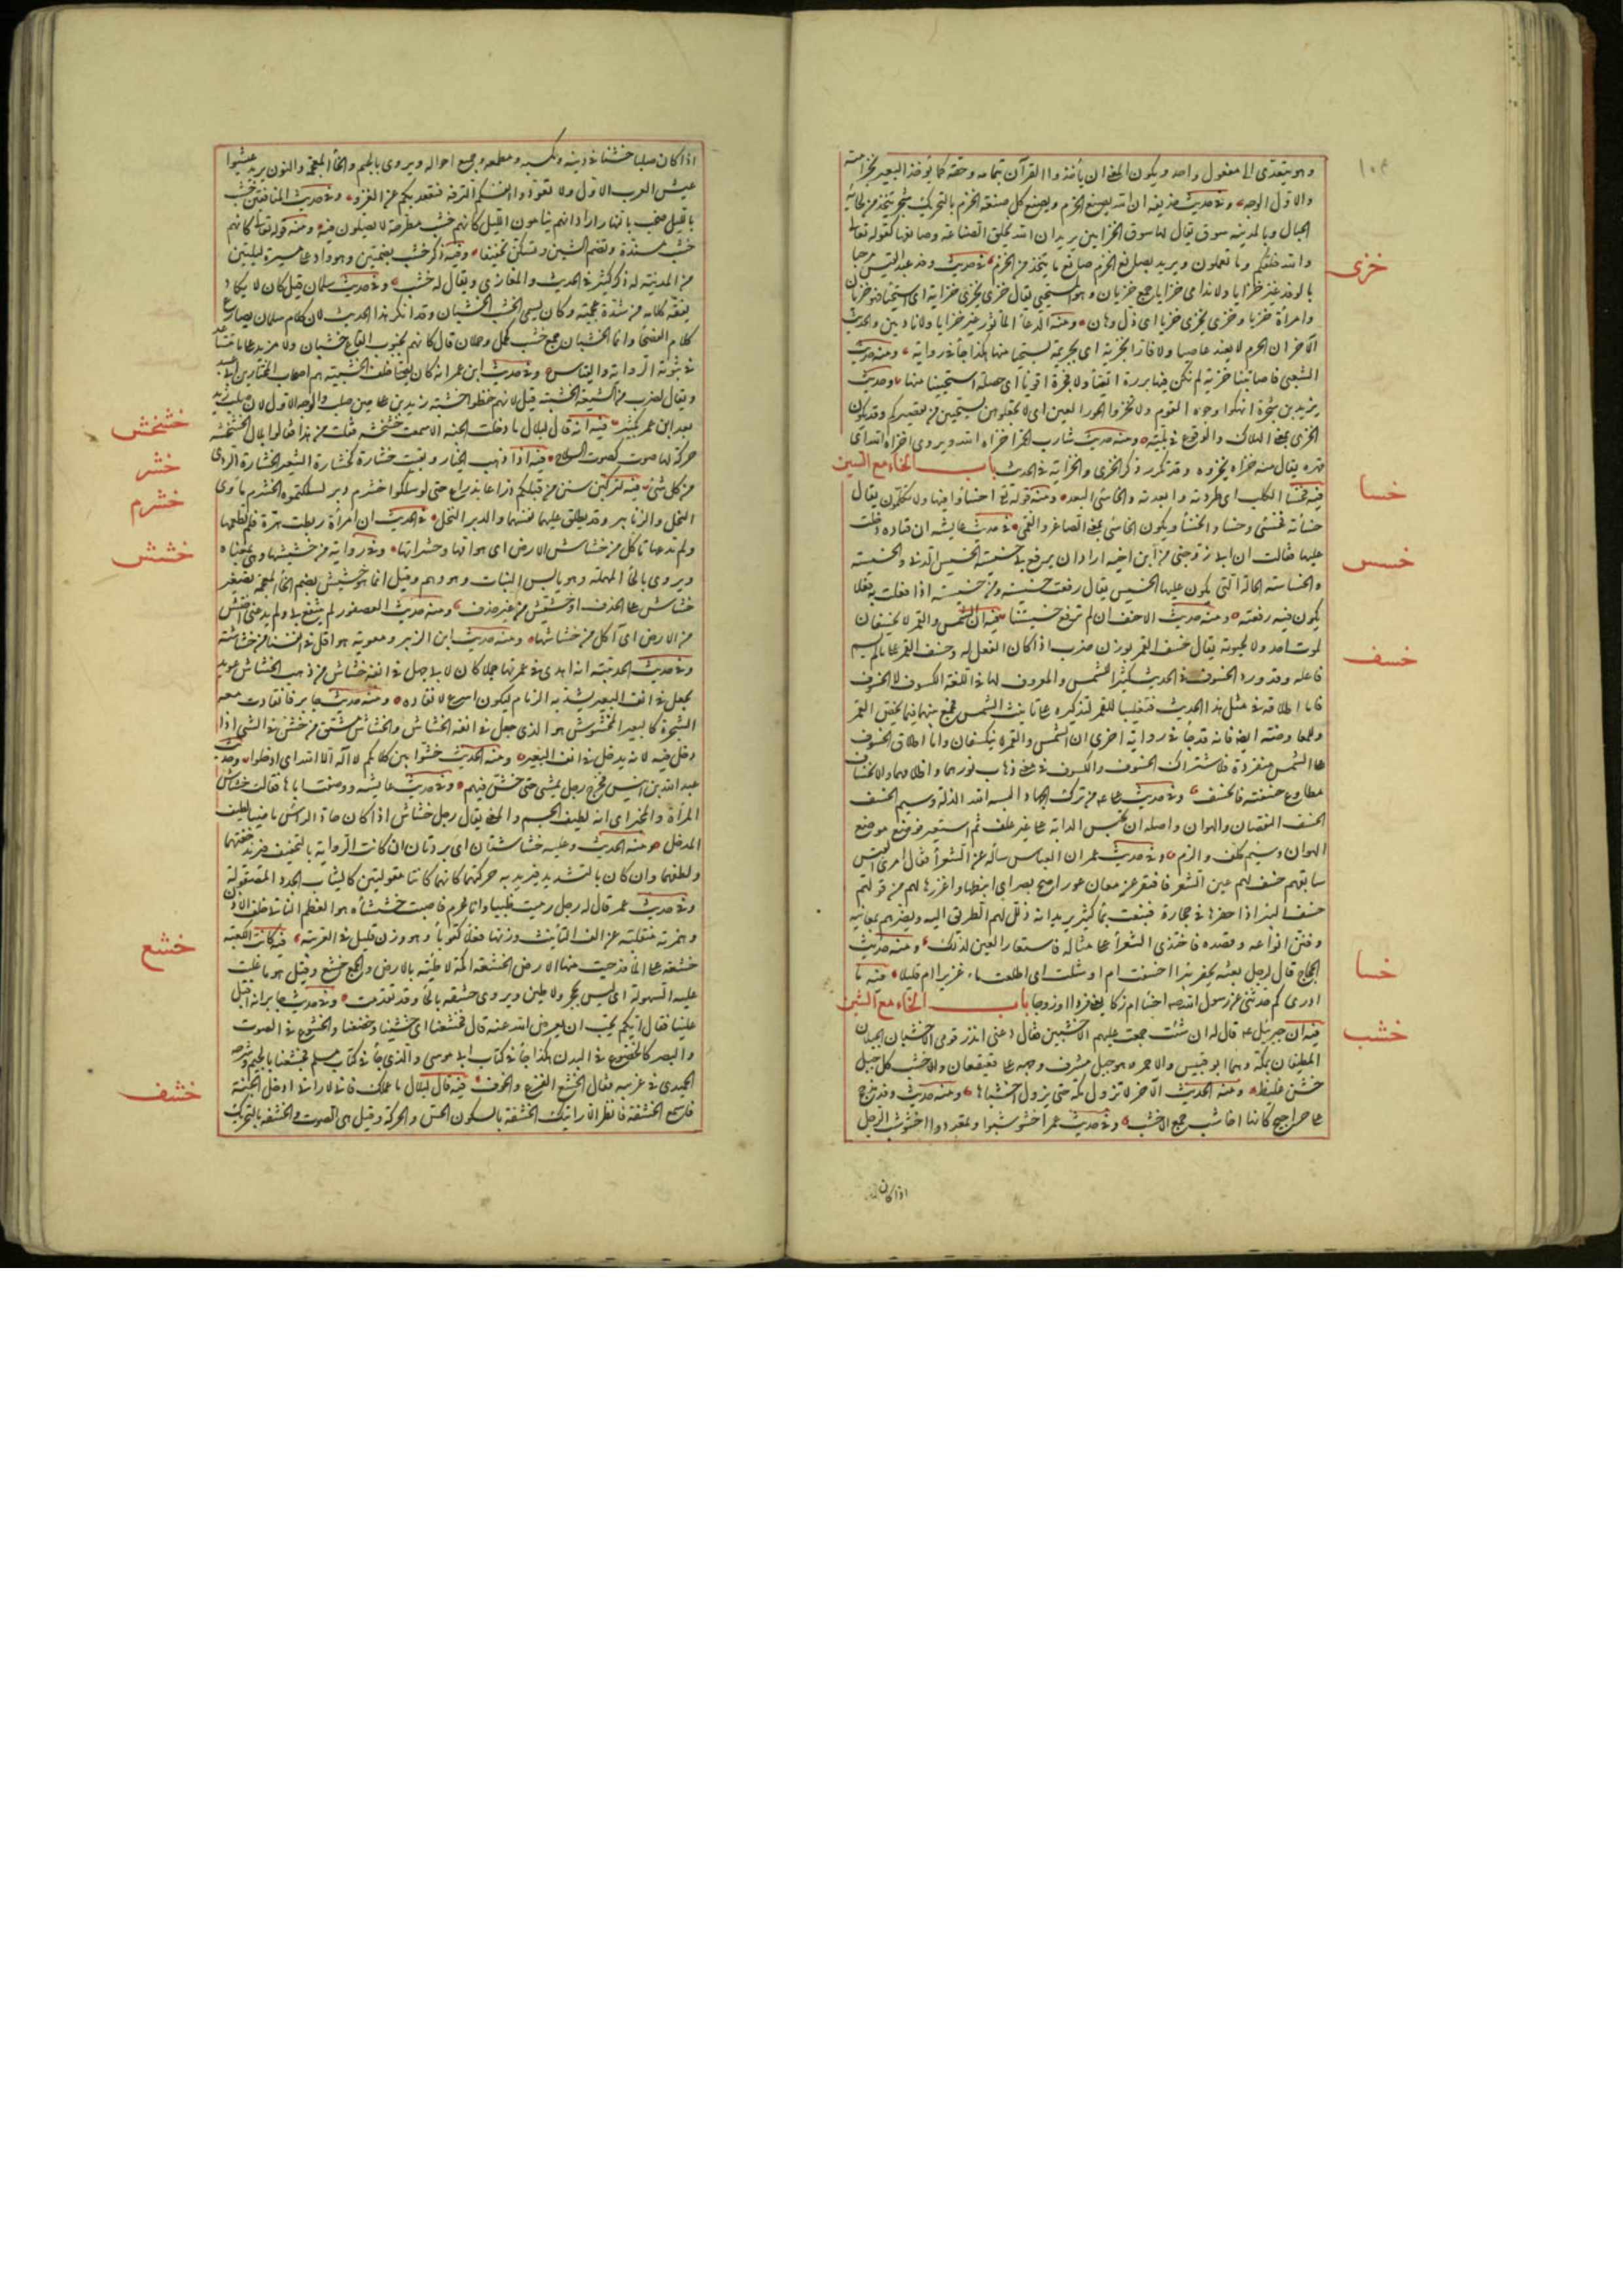 ١٠٤
وهو يتعدى الى مفعول واحد ويكون المعنى ان يأخذوا القرآن بتمامه وحقه كما يؤخذ البعير بخزامته
والاول الوجه وفى حديث حذيفة ان الله يصنع الخزم ويصنع كل صنعة الخزم بالتحريك شجر يتخذ من لحائه
الحبال وبالمدينه سوق يقال لها سوق الخزامين يريد ان الله يخلق الصناعة وصانعها كقوله تعالى
خزى
والله خلقكم وما تعملون ويريد بصانع الخزم صانع ما يتخذ من الخزم فى حديث وفد عبد القيس مرحبا
بالوفد غير خزايا ولا ندامى خزايا جمع خزيان وهو المستحيى يقال خزى يخزى خزاية اى استحيا فهو خزيان
وامرأة خزيا وخزى يخزى خزيا اى ذل وهان ومنه الدعاء المأثور غير خزايا ولا نادمين والحديث
الآخر ان الحرم لا يعيذ عاصيا ولا فارا بخزية اى بجريمة يستحيا منها هكذا جاء فى رواية ومنه حديث
الشعبى فاصابتنا خزية لم نكن فيها بررة اتقيا ولا فجرة اقويا اى خصلة استحيينا منها وحديث
يزيد بن شجرة انهكوا وجوه القوم ولا تخزوا الحور العين اى لا تجعلوهن يستحيين من تقصيركم وقد يكون
الخزى بمعنى الهلاك والوقوع فى بلية ومنه حديث شارب الخمر اخزاه الله ويروى اخزاه الله اى
قهره يقال منه خزاه يخزوه وقد تكرر ذكر الخزى والخزاية فى الحديث باب الخاء مع السين
خسا
فيه فخسأت الكلب اى طردته وابعدته والخاسئ المبعد ومنه قوله تعا اخسأوا فيها ولا تكلمون يقال
خسأته فخسئ وخسا وانخسأ ويكون الخاسئ بمعنى الصاغر القمى فى حديث عايشه ان فتاة دخلت
خسس
عليها فقالت ان ابى زوجنى من ابن اخيه اراد ان يرفع بى خسيسته الخسيس الدنى والخسيسة
والخساسة الحالة التى يكون عليها الخسيس يقال رفعت خسيسته ومن خسيسته اذا فعلت به فعلا
يكون فيه رفعته ومنه حديث الاحنف ان لم ترفع خسيستنا فيه ان الشمس والقمر لا يخسفان
خسف
لموت احد ولا لحيوته يقال خسف القمر بوزن ضرب اذا كان الفعل له وخسف القمر على ما لم يسم
فاعله وقد ورد الخسوف فى الحديث كثيرا للشمس والمعروف لها فى اللغة الكسوف لا الخسوف
فاما اطلاقه فى مثل هذا الحديث فتغليبا للقمر لتذكيره على تانيث الشمس فجمع بينهما فيما يخص القمر
وللمعاوضة ايضا فانه قد جاء فى رواية اخرى ان الشمس والقمر لا ينكسفان واما اطلاق الخسوف
على الشمس منفردة فلاشتراك الخسوف والكسوف فى معنى ذهاب نورهما واظلامهما والانخساف
مطاوع خسفته فانخسف وفى حديث على من ترك الجهاد البسه الله الذلة وسيم الخسف
الخسف النقصان والهوان واصله ان تحبس الدابة على غير علف ثم استعير فوضع موضع
الهوان وسيم كلف والزم وفى حديث عمر ان العباس سأله عن الشعراء فقال امرئ القيس
سابقهم خسف لهم عين الشعر فافتقر عن معان عور اصح بصر اى انبطها واغزرها لهم من قولهم
خسف البئر اذا حفرها فى حجارة فنبعت بماء كثير يريد انه ذلل لهم الطريق اليه وبصرهم بمعانيه
وفنن انواعه وقصده فاحتذى الشعراء على مثاله فاستعار العين لذلك ومنه حديث
خسا
الحجاج قال لرجل بعثه يحفر بئرا اخسفت ام اوشلت اى اطلعت ماء غزيرا ام قليلا فيه ما
ادرى كم حدثنى عن رسول الله صم اخسا ام زكا يعنى فردا او زوجا باب الخاء مع الشين
خشب
فيه ان جبرئيل عم قال له ان شئت جمعت عليهم الاخشبين فقال دعنى انذر قومى الاخشبان الجبلان
المطيفان بمكة وهما ابو قبيس والاحمر وهو جبل مشرف وجهه على قعيقعان والاخشب كل جبل
خشن غليظ ومنه الحديث الآخر لا تزول مكة حتى يزول اخشباها ومنه حديث وفد مذحج
على حراجيج كانها اخاشب جمع الاخشب وفى حديث عمر اخشوشبوا وتمعددوا اخشوشب الرجل
اذا كان
اذا كان صلبا خشنا فى دينه وملبسه ومطعمه وجميع احواله ويروى بالجيم والخاء المعجمة والنون يريد عيشوا
عيش العرب الاول ولا تعودوا انفسكم الترفه فيقعد بكم عن الغزو وفى حديث المنافقين خشب
بالليل صخب بالنهار اراد انهم ينامون الليل كانهم خشب مطرحة لا يصلون فيه ومنه قوله تعالى كانهم
خشب مسندة وتضم الشين وتسكن تخفيفا وفيه ذكر خشب بضمتين وهو واد على مسيرة ليلتين
من المدينة له ذكر كثير فى الحديث والمغازى ويقال له ذو خشب وفى حديث سلمان قيل كان لا يكاد
يفقه كلامه من شدة عجمته وكان يسمى الخشب الخشبان وقد انكر هذا الحديث لان كلام سلمان يضارع
كلام الفصحا وانما الخشبان جمع خشب كحمل وحملان قال كانهم بجنوب القاع خشبان ولا مزيد على ما تتساعد
فى ثبوته الرواية والقياس وفى حديث ابن عمر انه كان يصلى خلف الخشبية هم اصحاب المختار بن ابى عبيد
ويقال لضرب من الشيعة الخشبية قيل لانهم حفظوا خشبة زيد بن على حين صلب والوجه الاول لان صلب زيد
خشخش
بعد ابن عمر بكثير فيه انه قال لبلال ما دخلت الجنه الا سمعت خشخشه فقلت من هذا فقالوا بلال الخشخشة
خشر
حركة لها صوت كصوت السلاح فيه اذا ذهب الخيار وبقيت خشارة كخشارة الشعير الخشارة الردى
خشرم
من كل شئ فيه لتركبن سنن من قبلكم ذراعا بذراع حتى لو سلكوا خشرم دبر لسلكتموه الخشرم مأوى
النحل والزنابير وقد يطلق عليهما انفسهما والدبر النحل فى الحديث ان امرأة ربطت هرة فلم تطعمها
خشش
ولم تدعها تاكل من خشاش الارض اى هوامها وحشراتها وفى رواية من خشيشها وهى بمعناه
ويروى بالحاء المهملة وهو يابس النبات وهو وهم وقيل انما هو خشيش بضم الخاء المعجمة تصغير
خشاش على الحذف او خشيش من غير حذف ومنه حديث العصفور لم ينتفع بى ولم يدعنى اختش
من الارض اى آكل من خشاشها ومنه حديث ابن الزبير ومعوية هو اقل فى انفسنا من خشاشة
وفى حديث الحديبية انه اهدى فى عمرتها جملا كان لابى جهل فى انفه خشاش من ذهب الخشاش عويد
يجعل فى انف البعير يشد به الزمام ليكون اسرع لانقياده ومنه حديث جابر فانقادت معه
الشجرة كالبعير المخشوش هو الذى جعل فى انفه الخشاش والخشاش مشتق من خش فى الشئ اذا
دخل فيه لانه يدخل فى انف البعير ومنه الحديث خشوا بين كلامكم لا اله الا الله اى ادخلوا وحديث
عبد الله بن انيس فخرج رجل يمشى حتى خش فيهم وفى حديث عايشه ووصفت اباها فقالت خشاش
المرآة والمخبر اى انه لطيف الجسم والمعنى يقال رجل خشاش اذا كان حاد الرأس ماضيا لطيف
المدخل ومنه الحديث وعليه خشاشتان اى بردتان ان كانت الرواية بالتخفيف فيريد خفتهما
ولطفهما وان كان بالتشديد فيريد به حركتهما كانهما كانتا مصقولتين كالثياب الجدد المصقولة
وفى حديث عمر قال له رجل رميت ظبيا وانا محرم فاصبت خششاه هو العظم الناتى خلف الاذن
خشع
وهمزته منقلبة عن الف التأنيث وزنها فعلاء كقوباء وهو وزن قليل فى العربية فيه كانت الكعبة
خشعة على الماء فدحيت منها الارض الخشعة اكمة لاطئة بالارض والجمع خشع وقيل هو ما غلبت
عليه السهولة اى ليس بحجر ولا طين ويروى خشفه بالخاء والفاء وقد تقدمت وفى حديث جابر انه اقبل
علينا فقال ايكم يحب ان يعرض الله عنه قال فخشعنا اى خشينا وخضعنا والخشوع فى الصوت
والبصر كالخضوع فى البدن هكذا جاء فى كتاب ابى موسى والذى جاء فى كتاب مسلم فجشعنا بالجيم وشرحه
خشف
الحميدى فى غريبه فقال الجشع الفزع والخوف فيه قال لبلال ما عملك فانى لا ارانى ادخل الجنة
فاسمع الخشفة فانظر الا رايتك الخشفة بالسكون الحس والحركة وقيل هى الصوت والخشفة بالتحريك